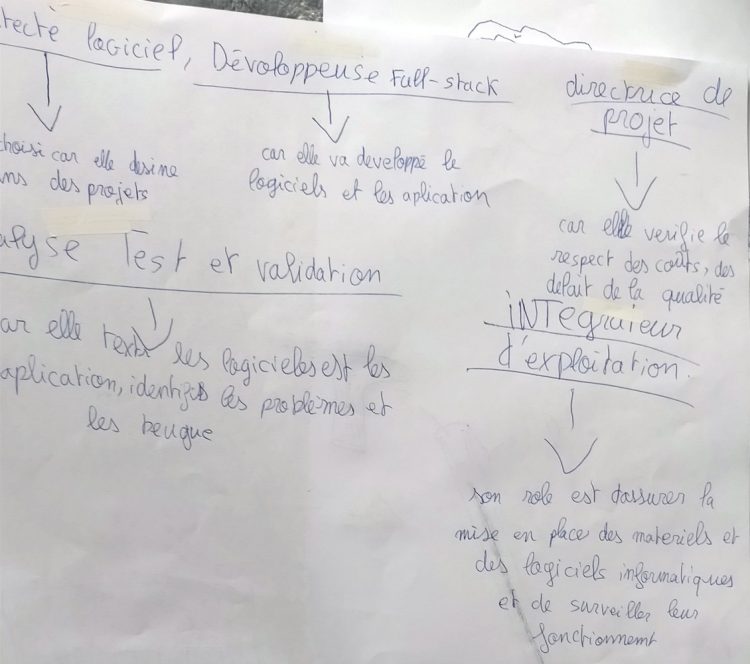 tecte logiciel,
choisi car elle desine
ns des projets
Développeuse Full-stack
car elle va developpé le
logiciels et les aplication
directrice de
projet
car elle verifie le
respect des coûts, des
defait de la qualité
alyse Test et validation
ar elle les logicieles est les
aplication, les problèmes et
les beugue
iNTEgraieur
d'exploitation.
son role est d'assurer la
mise en place des materiels et
des logiciels informatiques
et de surveiller leur
fonctionnemt